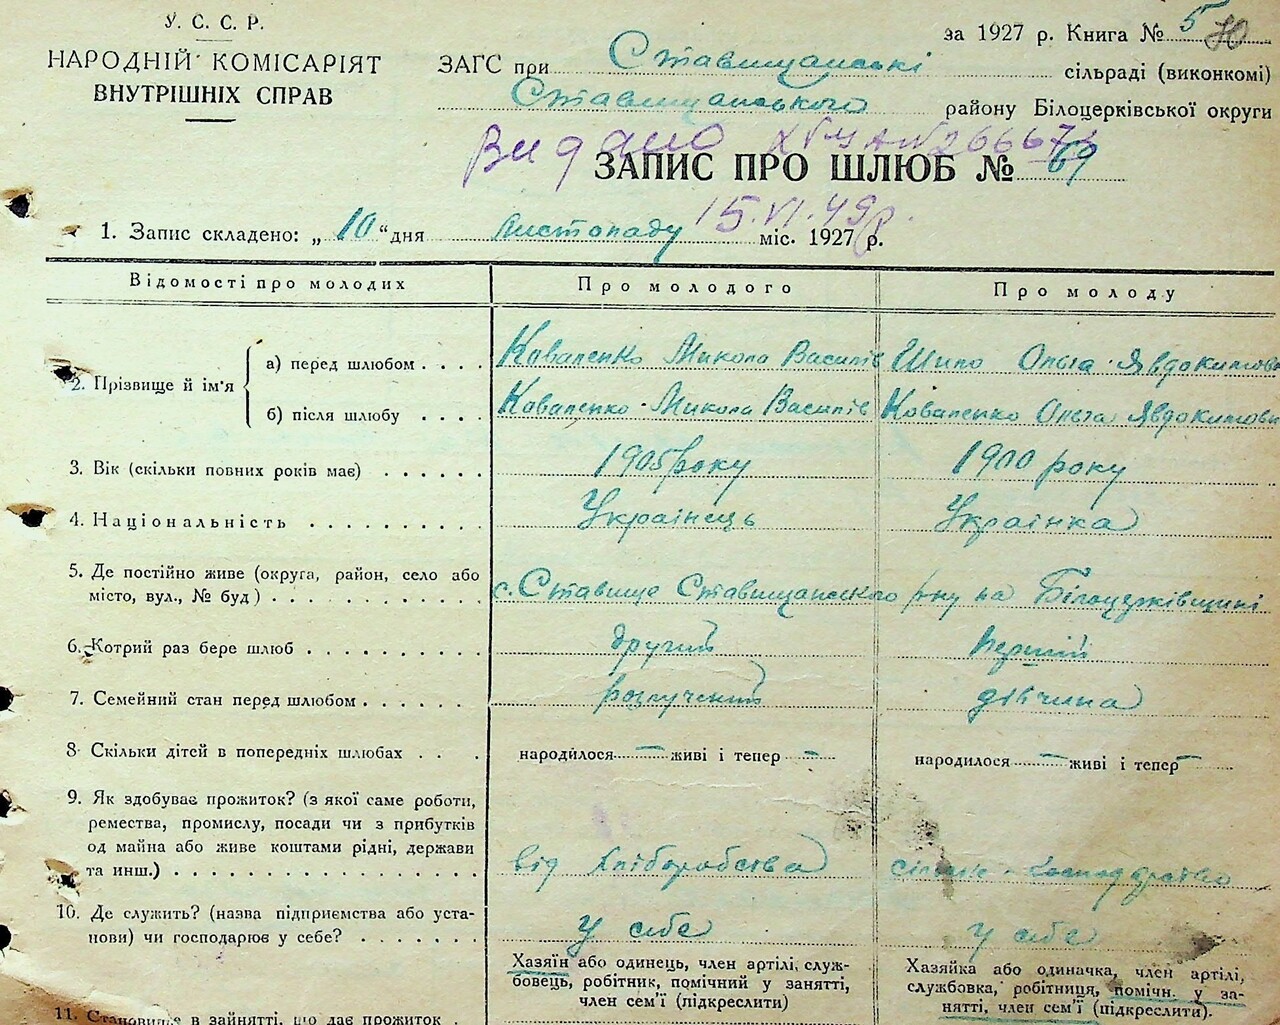 У. С. С. Р.
НАРОДНІЙ КОМІСАРІЯТ
ВНУТРІШНІХ СПРАВ
за 1927 р. Книга № 5 70
ЗАГС при Ставищанські сільраді (виконкомі)
Ставищанського району Білоцерківської округи
Видано 266673
ЗАПИС ПРО ШЛЮБ № 69
15.VI.49р.
1. Запис складено: „10“ дня листопаду міс. 1927 р.
Відомості про молодих Про молодого Про молоду
2. Прізвище й ім'я
а) перед шлюбом . . . . Коваленко Микола Василів Шило Ольга Явдокимова
б) після шлюбу . . . . Коваленко Микола Василів Коваленко Ольга Явдокимови
3. Вік (скільки повних років має) . . . . . . 1905 року 1900 року
4. Національність . . . . . . . . . . Українець Українка
5. Де постійно живе (округа, район, село або
місто, вул., № буд) . . . . . . . . . . . с. Ставище Ставищанского р-ну на Білоцерківщині
6. Котрий раз бере шлюб . . . . . . . . . . другий перший
7. Семейний стан перед шлюбом . . . . . . розлучений дівчина
8 Скільки дітей в попередніх шлюбах . . . народилося — живі і тепер — народилося — живі і тепер —
9. Як здобуває прожиток? (з якої саме роботи,
ремества, промислу, посади чи з прибутків
од майна або живе коштами рідні, держави
та инш.) . . . . . . . . . . . . . . . від хліборобства сільське господарство
10. Де служить? (назва підприємства або уста-
нови) чи господарює у себе? . . . . . . . у себе у себе
Хазяїн або одинець, член артілі, служ-
бовець, робітник, помічний у занятті,
член сем'ї (підкреслити)
Хазяйка або одиначка, член артілі,
службовка, робітниця, помічн. у за-
нятті, член сем'ї (підкреслити).
11. Становище в зайнятті, що дає прожиток .